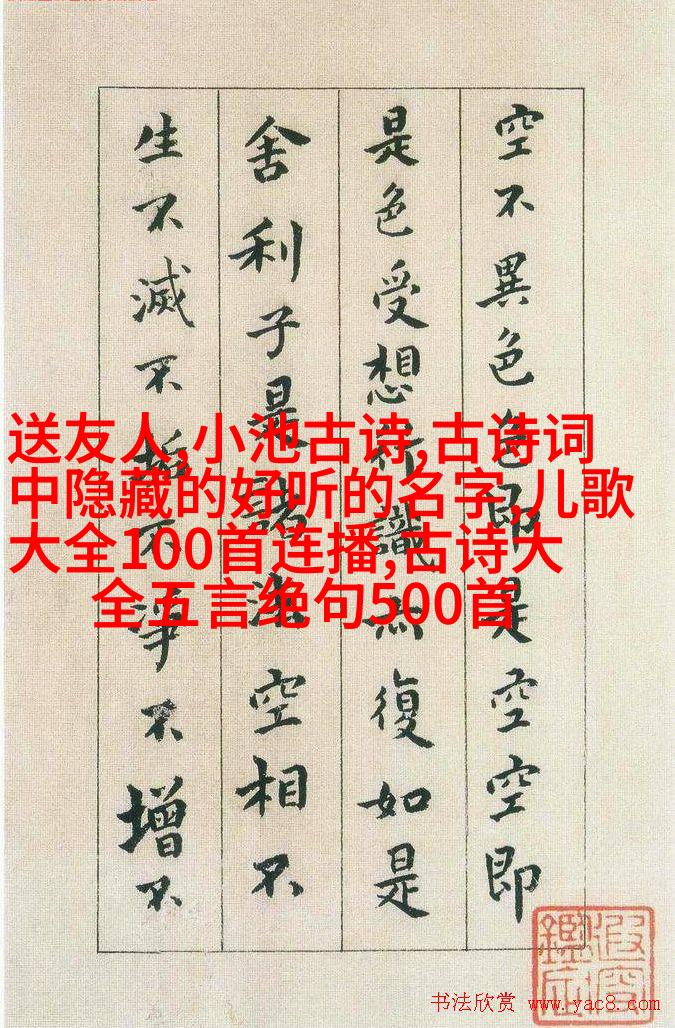 空不異色色即是空空即
是色受想行識亦復如是
舍利子是諸法空相不
生不滅不垢不淨不增不
送友人,小池古诗,古诗词
中隐藏的好听的名字,儿歌
大全100首连播,古诗大
全五言绝句500首
书法欣赏 www.yac8.com